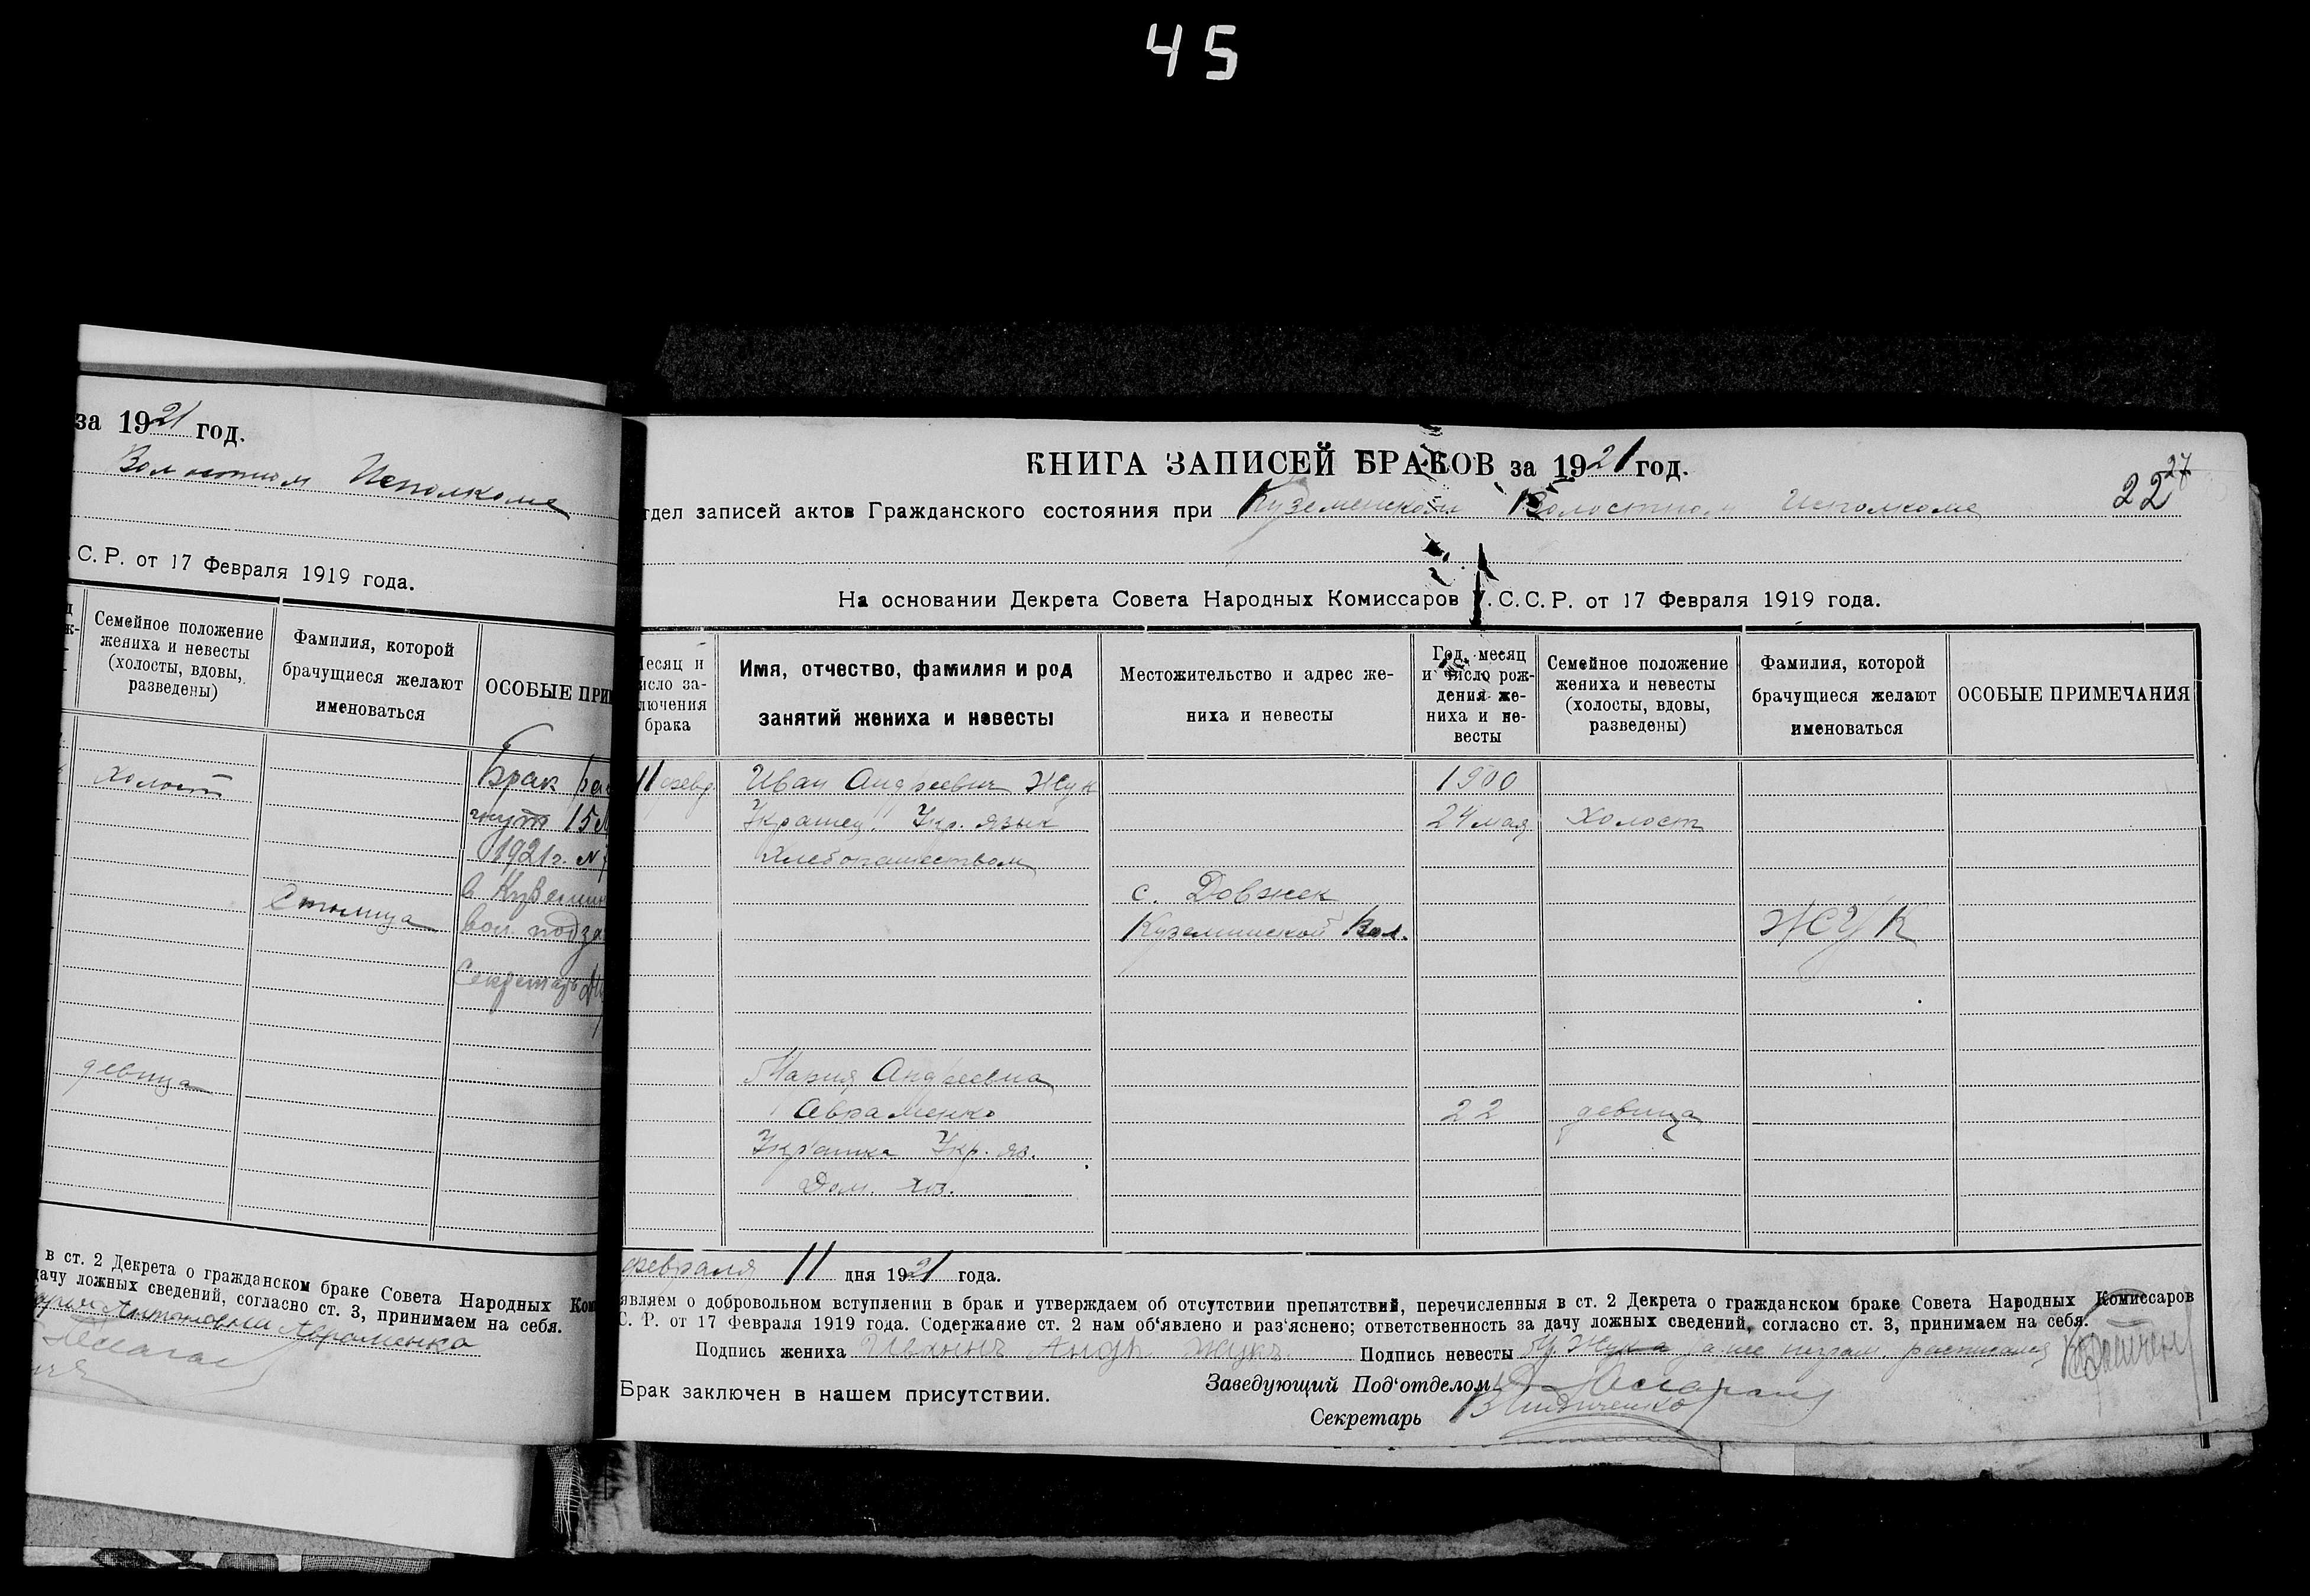 45
за 1921 год.
Волостном Исполкоме
С. Р. от 17 Февраля 1919 года.
Семейное положение
жениха и невесты
(холосты, вдовы,
разведены)
Фамилия, которой
брачущиеся желают
именоваться
ОСОБЫЕ ПРИ
Брак
холост
15
1921 г. №
в
вол.
Секретарь
девица
в ст. 2 Декрета о гражданском браке Совета Народных Ком
дачу ложных сведений, согласно ст. 3, принимаем на себя.
Антоновна Авраменко
КНИГА ЗАПИСЕЙ БРАКОВ за 1921 год.
27
22
тдел записей актов Гражданского состояния при Куземенском Волостном Исполкоме
На основании Декрета Совета Народных Комиссаров У.С.С.Р. от 17 Февраля 1919 года.
Месяц и
число за-
ключения
брака
Имя, отчество, фамилия и род
занятий жениха и невесты
Местожительство и адрес же-
ниха и невесты
Год, месяц
и число рож-
дения же-
ниха и не-
весты
Семейное положение
жениха и невесты
(холосты, вдовы,
разведены)
Фамилия, которой
брачущиеся желают
именоваться
ОСОБЫЕ ПРИМЕЧАНИЯ
11 февр Иван Андреевич Жук 1900
Украинец. Укр. язык 24 мая Холост
Хлебопашеством
с. Довжек
Куземинской Вол. ЖУК
Мария Андреевна
Авраменко 22 девица
Украинка Укр. яз.
Дом. хоз.
февраля 11 дня 1921 года.
являем о добровольном вступлении в брак и утверждаем об отсутствии препятствий, перечисленныя в ст. 2 Декрета о гражданском браке Совета Народных Комиссаров
С. Р. от 17 Февраля 1919 года. Содержание ст. 2 нам об'явлено и раз'яснено; ответственность за дачу ложных сведений, согласно ст. 3, принимаем на себя.
Подпись жениха Андр Жукъ Подпись невесты за нее неграм. расписался
Брак заключен в нашем присутствии.
Заведующий Под'отделом
Секретарь